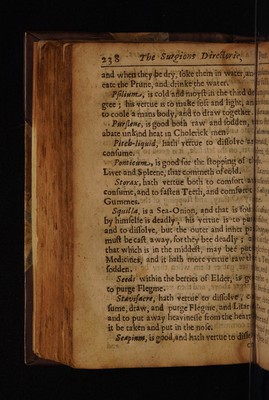 238 The Surgions Directorie,
and when they be dry, soke them in water, and
eate the Prune, and drinke the water.
Psilium, is cold and moyst in the third de-
gree; his vertue is to make soft and light; and
to coole a mans body, and to draw together.
Purslane, is good both raw and sodden,
abate unkind heat in Cholerick men
Pitch-liquid, hath vertue to dissolve
consume.
Ponticum, is good for the stopping of the
Liver and Spleene, that commeth of cold.
Storax, hath vertue both to comfort and
consume, and to fasten Teeth, and comfort
Gummes.
Squilla, is a Sea-Onion, and that is
by himselfe is deadly, his vertue is to
and to dissolve, but the outer and inher
must be cast away, for they bee deadly;
that which is in the middest, may bee put
Medicines, and it hath more vertue raw
sodden.
Seeds within the berries of Elder, is
to purge Flegme.
Stavisacre, hath vertue to dissolve,
sume, draw, and purge Flegme, and
and to put away heavinesse from the heart
it be taken and put in the nose.
Seapinum, is good, and hath vertue to